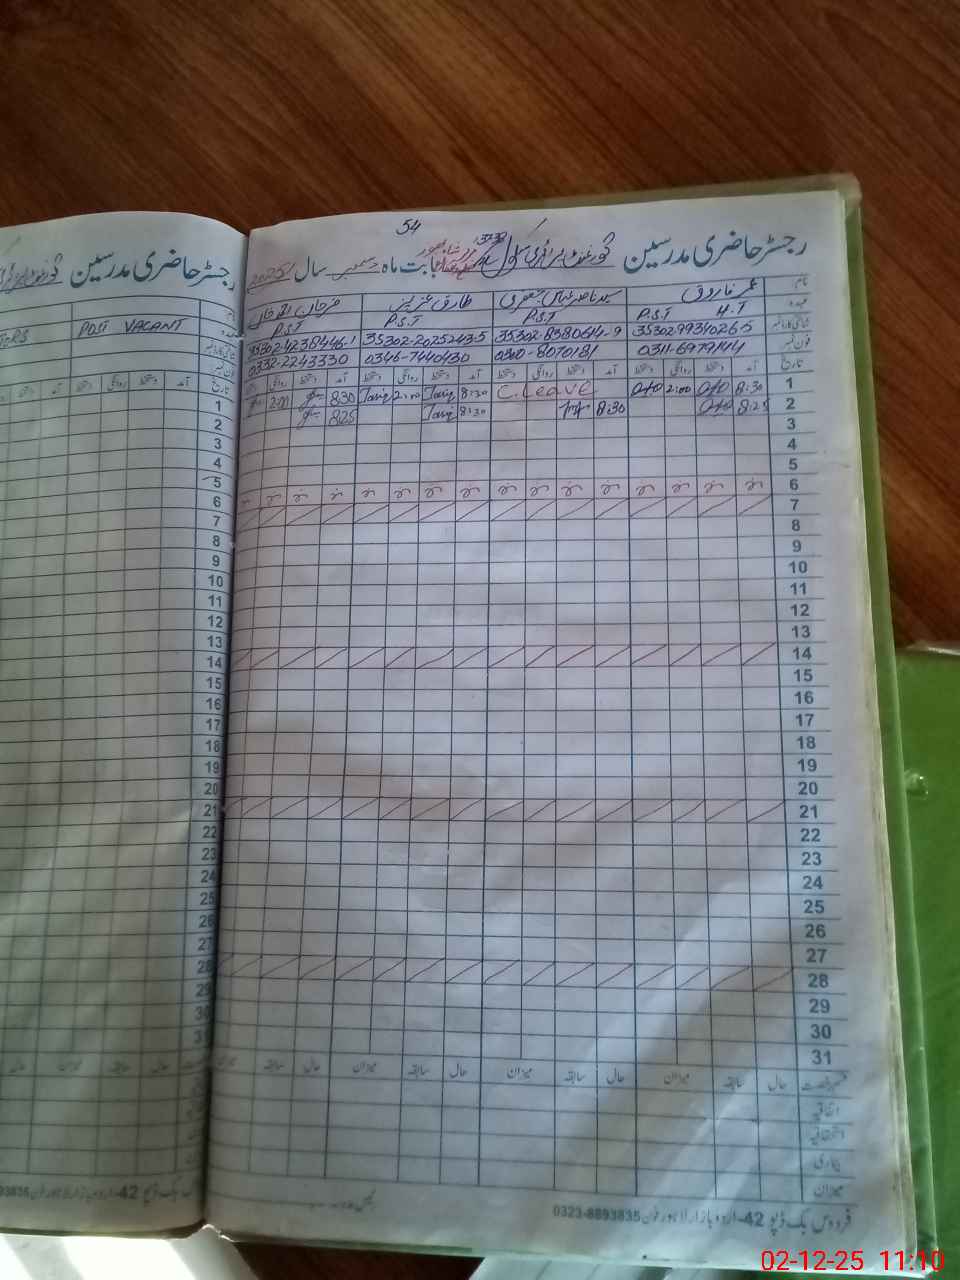 54
رجسٹر حاضری مدرسین گورنمنٹ پرائمری سکول بابت ماہ دسمبر سال 2025
نام عمر فاروق سید ناصر عباس جعفری طارق عزیز
عہدہ H.T P.S.T P.S.T P.S.T P.S.T
شناختی کارڈ نمبر 35302-9934026-5 35302-8380614-9 35302-2025243-5 35302-4238446-1
فون نمبر 0311-6979144 0340-8070181 0346-7440430 0332-2243330
تاریخ آمد دستخط روانگی دستخط آمد دستخط روانگی دستخط آمد دستخط روانگی دستخط آمد دستخط روانگی
1 8:30 2:00 C.Leave 8:30 Tariq 2:00 Tariq 8:30 2:00
2 8:25 8:30 8:30 Tariq 8:25
3
4
5
6
7
8
9
10
11
12
13
14
15
16
17
18
19
20
21
22
23
24
25
26
27
28
29
30
31
قسم رخصت حال سابقہ میزان حال سابقہ میزان حال سابقہ میزان حال سابقہ میزان
اتفاقیہ
استحقاقیہ
بیماری
میزان
فردوس بک ڈپو 42-اردو بازار لاہور فون 0323-8893835
رجسٹر حاضری مدرسین
POST VACANT
تاریخ آمد دستخط روانگی دستخط آمد
1
2
3
4
5
6
7
8
9
10
11
12
13
14
15
16
17
18
19
20
21
22
23
24
25
26
27
28
29
30
31
حال سابقہ میزان
بک ڈپو 42-اردو بازار لاہور فون
02-12-25 11:10